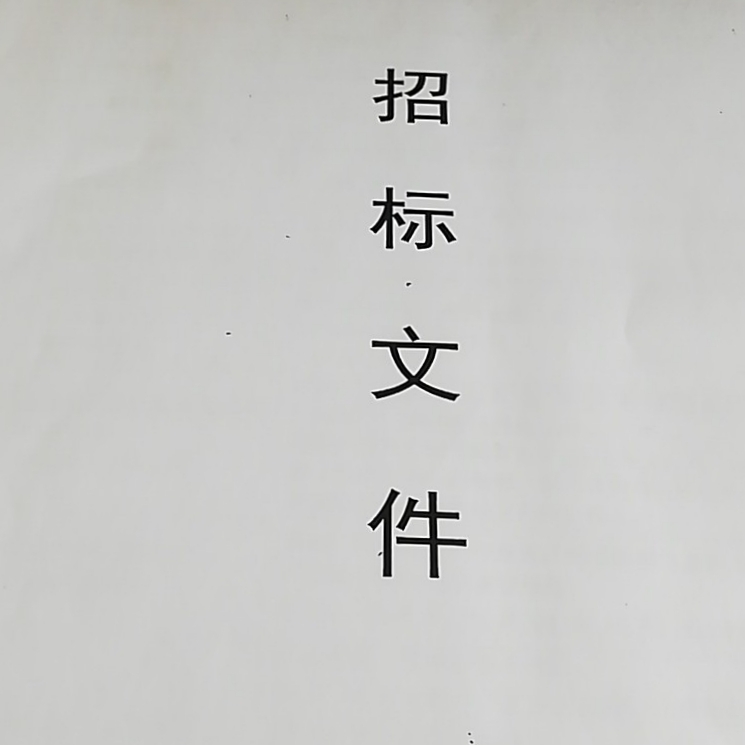 招标文件